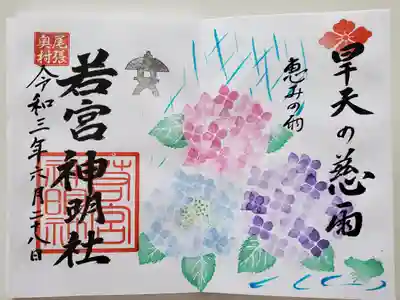 旱天の慈雨
恵みの雨
若宮神明社
尾張
奥村
令和三年六月二十八日